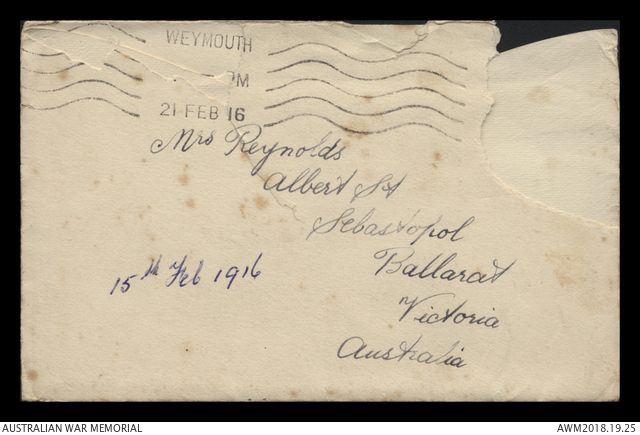 WEYMOUTH
PM
21 FEB 16
Mrs Reynolds
Albert St
Sebastopol
Ballarat
Victoria
Australia
15th Feb 1916
AUSTRALIAN WAR MEMORIAL
AWM2018.19.25